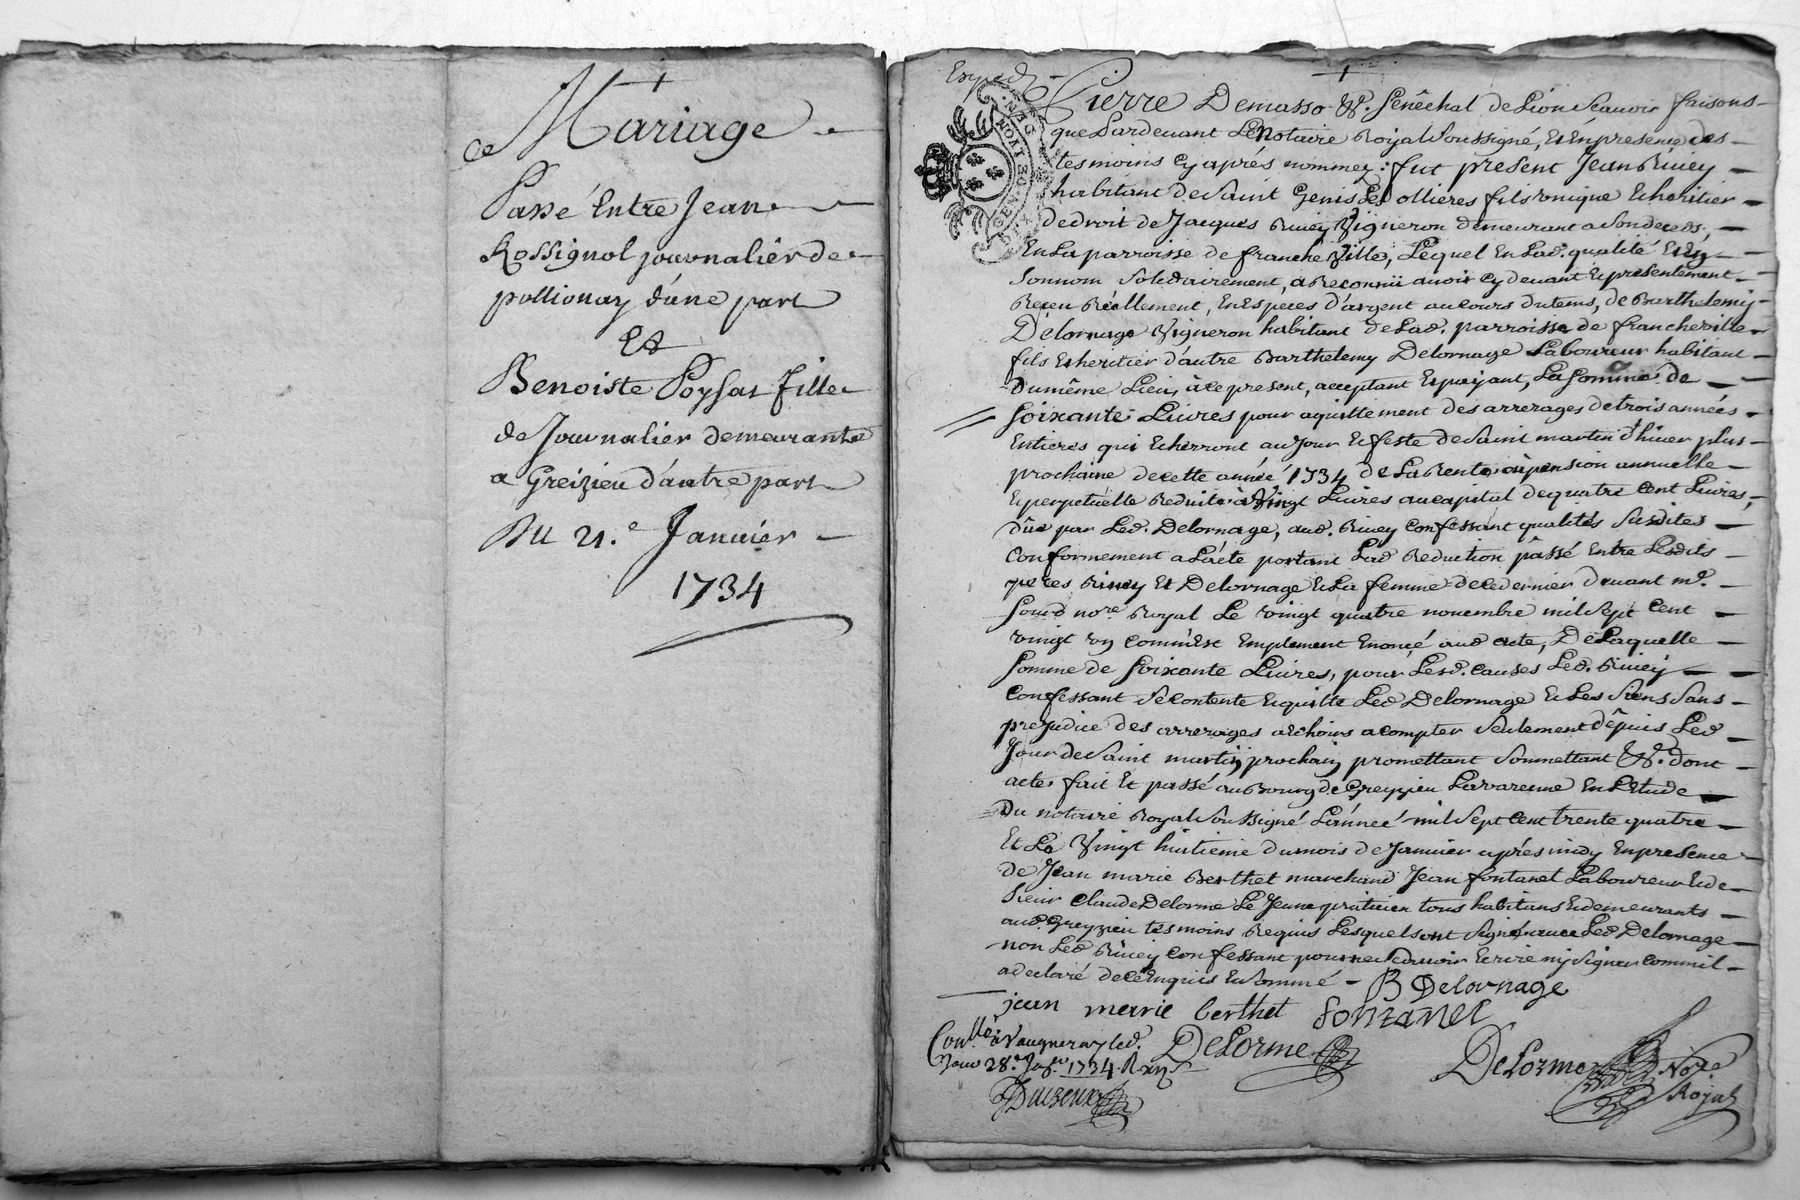 Mariage
Passé Entre Jean
Rossignol journalier de
pollionay d'une part
Et
Benoiste Poysat fille
de Journalier demeurante
a Greizieu d'autre part
Du 21.e Janvier
1734
Exped
Pierre Demasso &c. Senéchal de Lion Scavoir faisons
que Pardevant Le Notaire Royal Soussigné, Et En presence des
tesmoins Cy aprés nommez : fut present Jean Rivey
habitant de Saint Genis Les ollieres fils unique Et heritier
de droit de Jacques Rivey Vigneron demeurant a
En La parroisse de francheville, Lequel En Lad. qualité Et En
Son nom Solidairement, a Reconnü avoir Cy devant Et presentement
Receu Réellement, En Especes d'argent au cours du tems, de Barthelemy
Delornage Vigneron habitant de Lad. parroisse de francheville
fils Et heritier d'autre Barthelemy Delornage Laboureur habitant
Du même Lieu, à ce present, acceptant Et payant, La Somme de
Soixante Livres pour aquittement des arrerages de trois années
Entieres qui Echerront au Jour Et feste de Saint martin d'hiver plus
prochaine de cette année 1734 de La Rente ou pension annuelle
Et perpetuelle Reduite à Vingt Livres au capital de quatre Cent Livres,
dûe par Led. Delornage, aud. Rivey Confessant qualités Susdites
Conformement a L'acte portant Lad Reduction passé Entre Lesdits
peres Rivey Et Delornage Et La femme de Ce dernier devant me.
nore. Royal Le vingt quatre novembre mil Sept Cent
vingt un comme Est Emplement Enoncé aud acte, De Laquelle
Somme de Soixante Livres, pour Lesd. Causes Led. Rivey
Confessant Se Contente Et quitte Led Delornage Et Les Siens Sans
prejudice des arrerages a Echoirs a compter Seulement dêpuis Led
Jour de Saint martin prochain promettant Soumettant &c. dont
acte, fait Et passé au Bourg de Greyzieu Lavarenne En L'Etude
Du notaire Royal Soussigné L'année mil Sept Cent trente quatre
Et Le Vingt huitieme du mois de Janvier aprés midy En presence
de Jean marie Berthet marchand Jean fontanel Laboureur Et de
Sieur Claude Delorme Le Jeune praticien tous habitans Et demeurants
aud. Greyzieu tesmoins Requis Lesquels ont Signé avec Led Delornage
non Led Rivey Confessant pour ne Scavoir Ecrire ny Signer comm'il
a declaré de ce Enquis Et Sommé - B Delornage
jean marie berthet fontanel
Conlle. a Vaugneray led. Delorme
Jour 28.e 1734. Delorme Nore
Royal